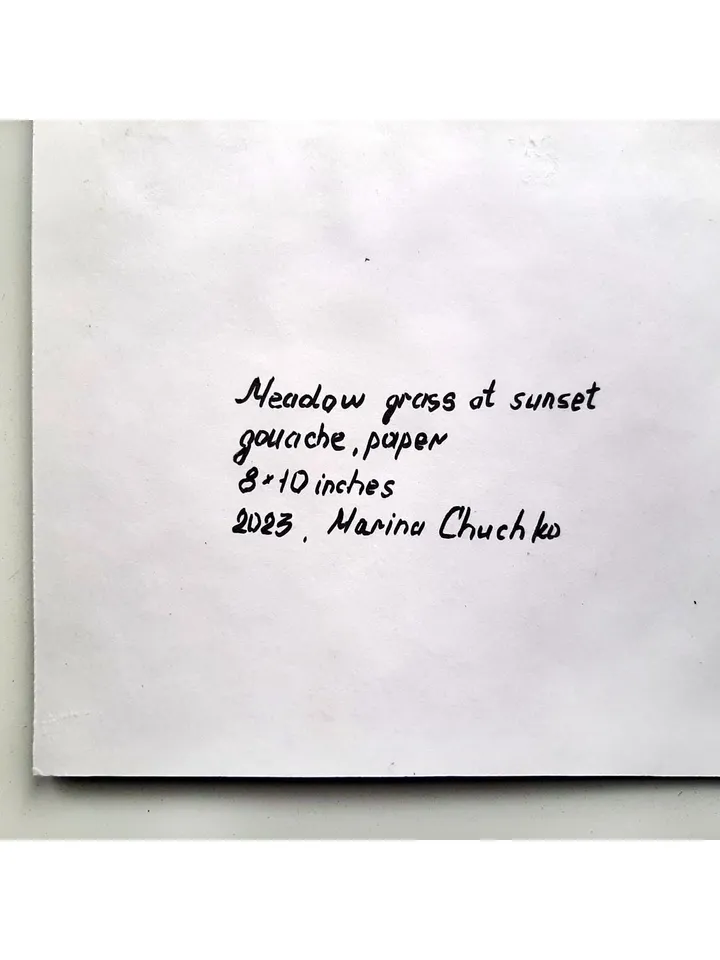 Meadow grass at sunset
gouache, paper
8×10 inches
2023, Marina Chuchko